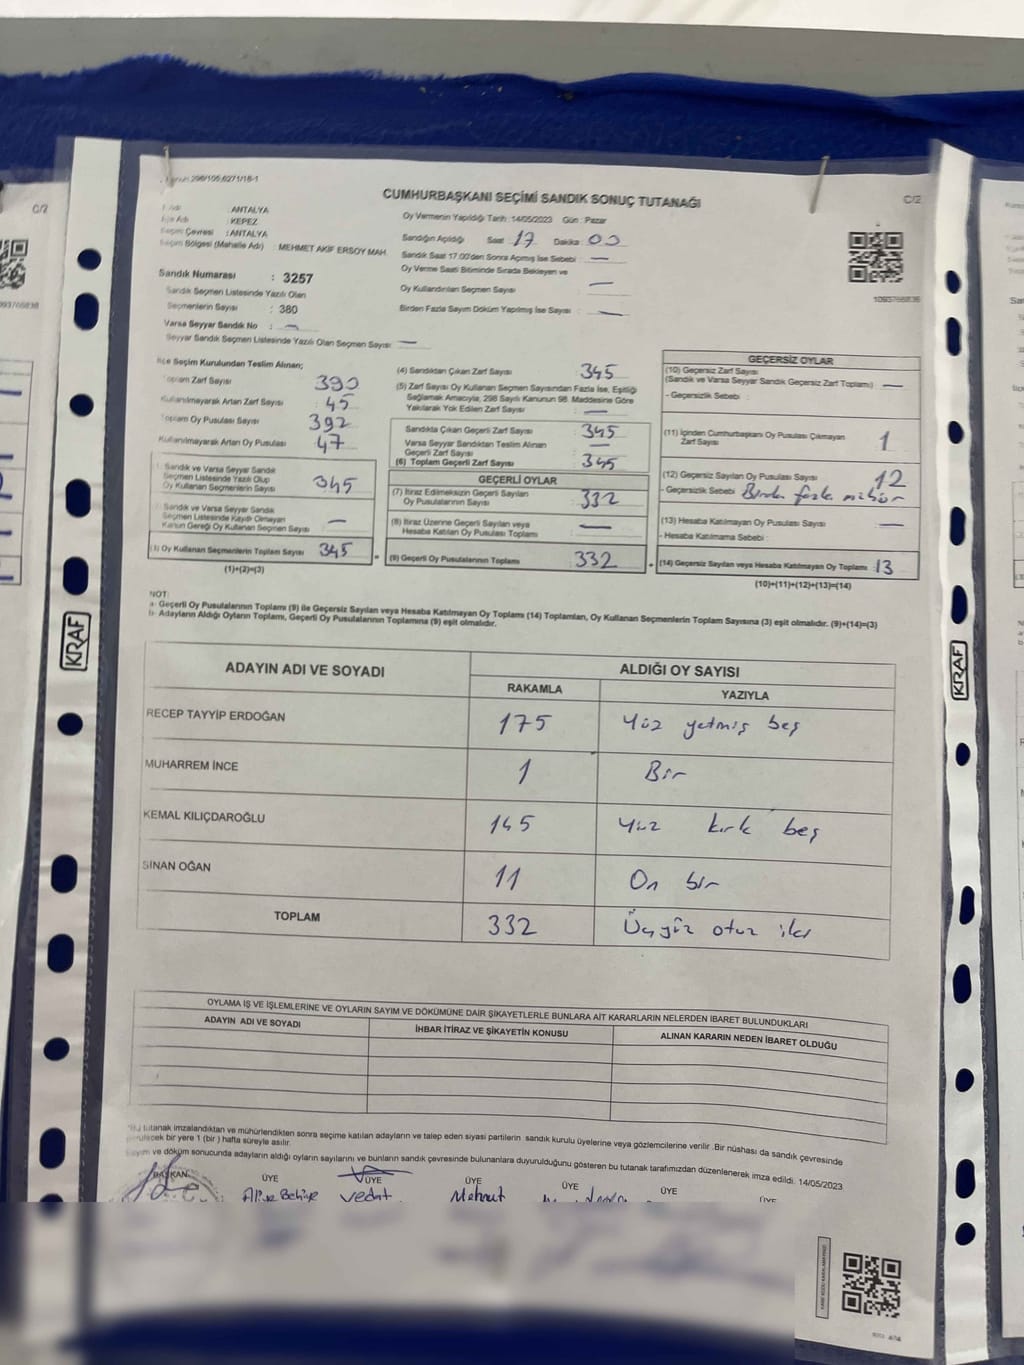 298/105.6271/18-1
C/2
CUMHURBAŞKANI SEÇİMİ SANDIK SONUÇ TUTANAĞI
C/2
: ANTALYA
İlçe Adı : KEPEZ
Seçim Çevresi : ANTALYA
Seçim Bölgesi (Mahalle Adı) : MEHMET AKİF ERSOY MAH.
Sandık Numarası : 3257
Sandık Seçmen Listesinde Yazılı Olan
Seçmenlerin Sayısı : 380
Varsa Seyyar Sandık No : —
Seyyar Sandık Seçmen Listesinde Yazılı Olan Seçmen Sayısı : —
Oy Vermenin Yapıldığı Tarih : 14/05/2023 Gün : Pazar
Sandığın Açıldığı Saat : 17 Dakika : 00
Sandık Saat 17:00'den Sonra Açılmış İse Sebebi : —
Oy Verme Saati Bitiminde Sırada Bekleyen ve
Oy Kullandırılan Seçmen Sayısı : —
Birden Fazla Sayım Döküm Yapılmış İse Sayısı : —
1093766836
İlçe Seçim Kurulundan Teslim Alınan;
Toplam Zarf Sayısı 390
Kullanılmayarak Artan Zarf Sayısı : 45
Toplam Oy Pusulası Sayısı : 392
Kullanılmayarak Artan Oy Pusulası : 47
Sandık ve Varsa Seyyar Sandık
Seçmen Listesinde Yazılı Olup
Oy Kullanan Seçmenlerin Sayısı : 345
Sandık ve Varsa Seyyar Sandık
Seçmen Listesinde Kayıtlı Olmayan
Kanun Gereği Oy Kullanan Seçmen Sayısı : —
(3) Oy Kullanan Seçmenlerin Toplam Sayısı : 345
(1)+(2)=(3)
(4) Sandıktan Çıkan Zarf Sayısı : 345
(5) Zarf Sayısı Oy Kullanan Seçmen Sayısından Fazla İse, Eşitliği
Sağlamak Amacıyla, 298 Sayılı Kanunun 98. Maddesine Göre
Yakılarak Yok Edilen Zarf Sayısı : —
Sandıkta Çıkan Geçerli Zarf Sayısı : 345
Varsa Seyyar Sandıktan Teslim Alınan
Geçerli Zarf Sayısı : —
(6) Toplam Geçerli Zarf Sayısı : 345
GEÇERLİ OYLAR
(7) İtiraz Edilmeksizin Geçerli Sayılan
Oy Pusulasının Sayısı : 332
(8) İtiraz Üzerine Geçerli Sayılan veya
Hesaba Katılan Oy Pusulası Toplamı : —
(9) Geçerli Oy Pusulalarının Toplamı : 332
GEÇERSİZ OYLAR
(10) Geçersiz Zarf Sayısı
(Sandık ve Varsa Seyyar Sandık Geçersiz Zarf Toplamı) : —
- Geçersizlik Sebebi :
(11) İçinden Cumhurbaşkanı Oy Pusulası Çıkmayan
Zarf Sayısı : 1
(12) Geçersiz Sayılan Oy Pusulası Sayısı : 12
- Geçersizlik Sebebi : Birden fazla mühür
(13) Hesaba Katılmayan Oy Pusulası Sayısı : —
- Hesaba Katılmama Sebebi :
(14) Geçersiz Sayılan veya Hesaba Katılmayan Oy Toplamı : 13
(10)+(11)+(12)+(13)=(14)
NOT:
a- Geçerli Oy Pusulalarının Toplamı (9) ile Geçersiz Sayılan veya Hesaba Katılmayan Oy Toplamı (14) Toplamları, Oy Kullanan Seçmenlerin Toplam Sayısına (3) eşit olmalıdır. (9)+(14)=(3)
b- Adayların Aldığı Oyların Toplamı, Geçerli Oy Pusulalarının Toplamına (9) eşit olmalıdır.
ADAYIN ADI VE SOYADI
ALDIĞI OY SAYISI
RAKAMLA YAZIYLA
RECEP TAYYİP ERDOĞAN 175 Yüz yetmiş beş
MUHARREM İNCE 1 Bir
KEMAL KILIÇDAROĞLU 145 Yüz kırk beş
SİNAN OĞAN 11 On bir
TOPLAM 332 Üçyüz otuz iki
OYLAMA İŞ VE İŞLEMLERİNE VE OYLARIN SAYIM VE DÖKÜMÜNE DAİR ŞİKAYETLERLE BUNLARA AİT KARARLARIN NELERDEN İBARET BULUNDUKLARI
ADAYIN ADI VE SOYADI İHBAR İTİRAZ VE ŞİKAYETİN KONUSU ALINAN KARARIN NEDEN İBARET OLDUĞU
*Bu tutanak imzalandıktan ve mühürlendikten sonra seçime katılan adayların ve talep eden siyasi partilerin sandık kurulu üyelerine veya gözlemcilerine verilir. Bir nüshası da sandık çevresinde
görülecek bir yere 1 (bir) hafta süreyle asılır.
Sayım ve döküm sonucunda adayların aldığı oyların sayılarını ve bunların sandık çevresinde bulunanlara duyurulduğunu gösteren bu tutanak tarafımızdan düzenlenerek imza edildi. 14/05/2023
BAŞKAN ÜYE ÜYE ÜYE ÜYE ÜYE ÜYE
Vedat Mahmut
KRAF
KRAF